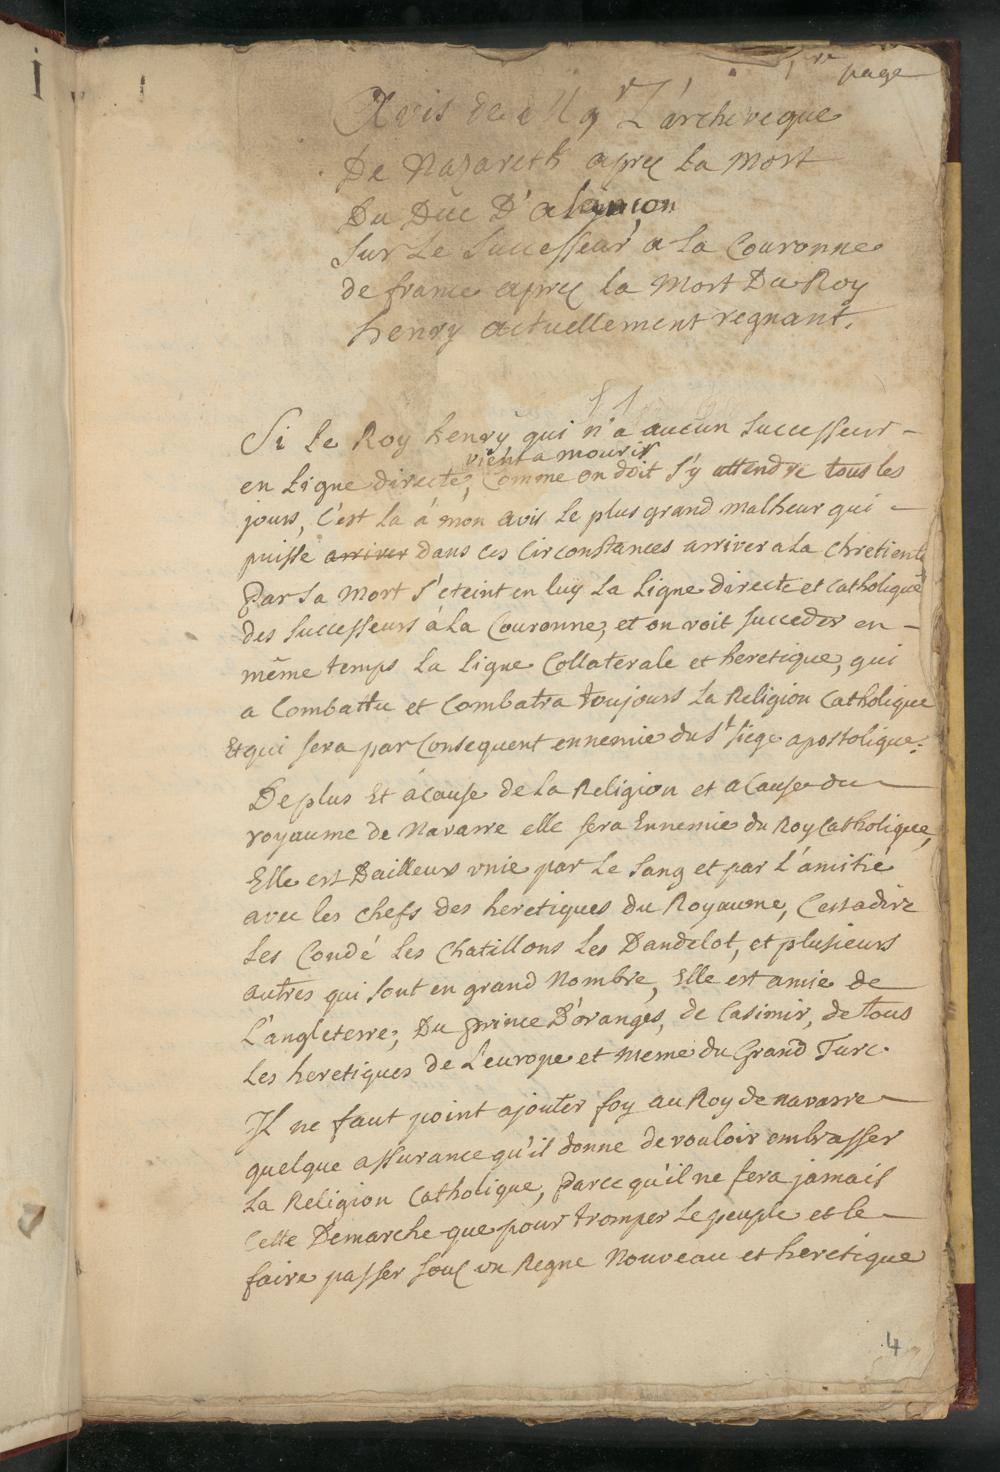 1re page
Avis de Mgr L'archeveque
De Nazareth apres la Mort
Du Duc D'alançon
Sur Le Successeur a la Couronne
de france apres la Mort Du Roy
henry actuellement regnant.
Si le Roy henry qui n'a aucun Successeur
vient a mourir
en Ligne directe, Comme on doit s'y attendre tous les
jours, C'est la a mon avis le plus grand malheur qui
puisse arriver dans ces Circonstances arriver a la chretienté
Par sa Mort s'eteint en luy La Ligne directe et Catholique
des Successeurs à La Couronne, et on voit succeder en
même temps La Ligne Collaterale et heretique, qui
a Combattu et Combatra toujours La Religion Catholique
Et qui sera par Consequent ennemie du St siege apostolique.
De plus Et àcause de La Religion et a Cause du
royaume de Navarre elle sera Ennemie du Roy Catholique,
Elle est Dailleurs unie par Le Sang et par L'amitié
avec les chefs des heretiques du Royaume, Cestadire
Les Condé Les Chatillons Les Dandelot, et plusieurs
autres qui sont en grand Nombre, Elle est amie de
L'angleterre, Du prince D'oranges, de Casimir, de tous
Les heretiques de L'europe et meme du Grand Turc.
Il ne faut point ajouter foy au Roy de navarre
quelque assurance qu'il donne de vouloir embrasser
La Religion Catholique, Parce qu'il ne fera jamais
Cette Demarche que pour tromper Le peuple et le
faire passer sous un Regne Nouveau et heretique
4